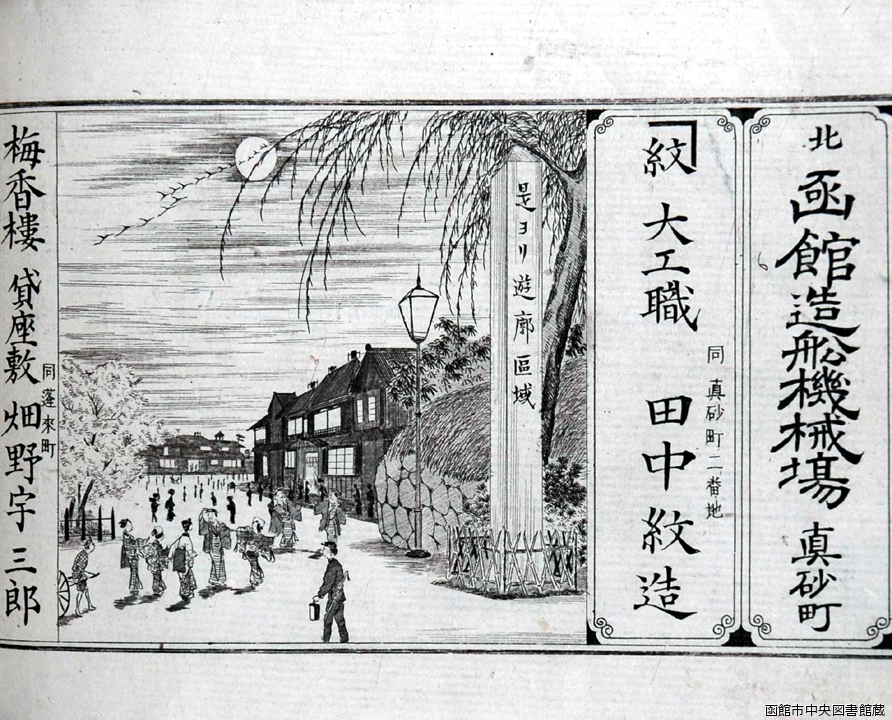 北 函館造船機械場 真砂町
紋 大工職 田中紋造
同真砂町二番地
是ヨリ遊廓區域
梅香樓 貸座敷 畑野宇三郎
同蓬来町
函館市中央図書館蔵